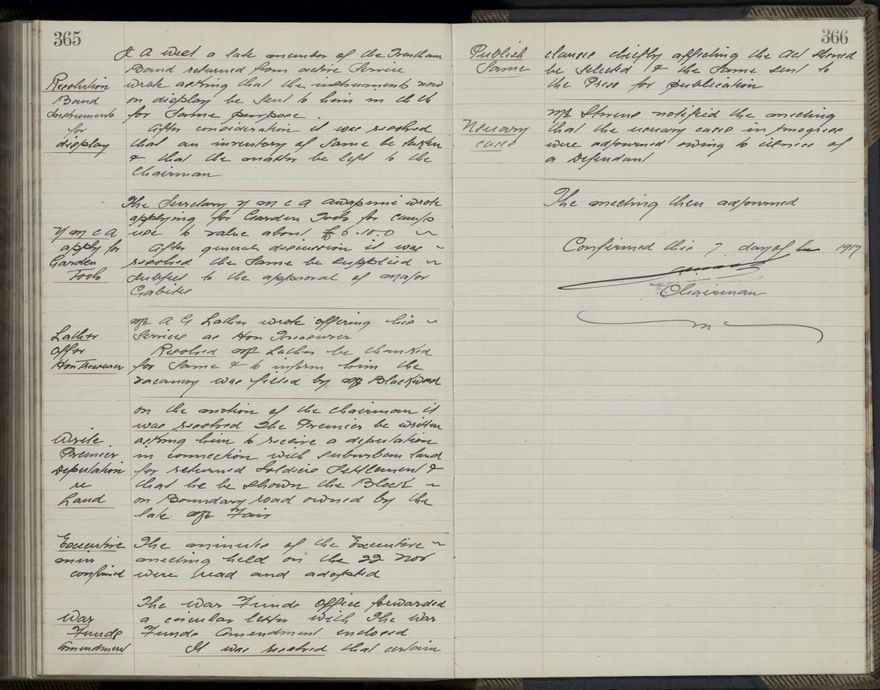 365
Resolution
Band
Instruments
for
display
A West a late member of the
Band returned from active Service
wrote asking that the instruments now
on display be sent to him in
for Same purpose.
After consideration it was resolved
that an inventory of Same be taken
& that the matter be left to the
Chairman
Y M C A
apply for
Garden
Tools
The Secretary Y M C A wrote
applying for Garden Tools for camp
use to value about £6.10.0
After general discussion it was
resolved the Same be supplied
subject to the approval of Major
Lather
offer
Hon Treasurer
Mr A G Lather wrote offering his
Services as Hon Treasurer
Resolved Mr Lather be thanked
for Same & to inform him the
vacancy was filled by Mr Blackwood
Write
Premier
Deputation
re
Land
On the motion of the Chairman it
was resolved the Premier be written
asking him to receive a deputation
in connection with suburban land
for returned Soldiers Settlement &
that he be shown the Block
on Boundary road owned by the
late Mr Fair
Executive
min
confirmed
The minutes of the Executive
meeting held on the 22 Nov
were read and adopted
War
Funds
Amendment
The War Funds Office forwarded
a circular letter with the War
Funds Amendment enclosed
It was resolved that certain
366
Publish
Same
clauses chiefly affecting the Act should
be selected & the Same sent to
the Press for publication
Usuary
cases
Mr Stevens notified the meeting
that the usuary cases in progress
were adjourned owing to illness of
a Defendant
The meeting then adjourned
Confirmed this 7 day of 1917
Chairman